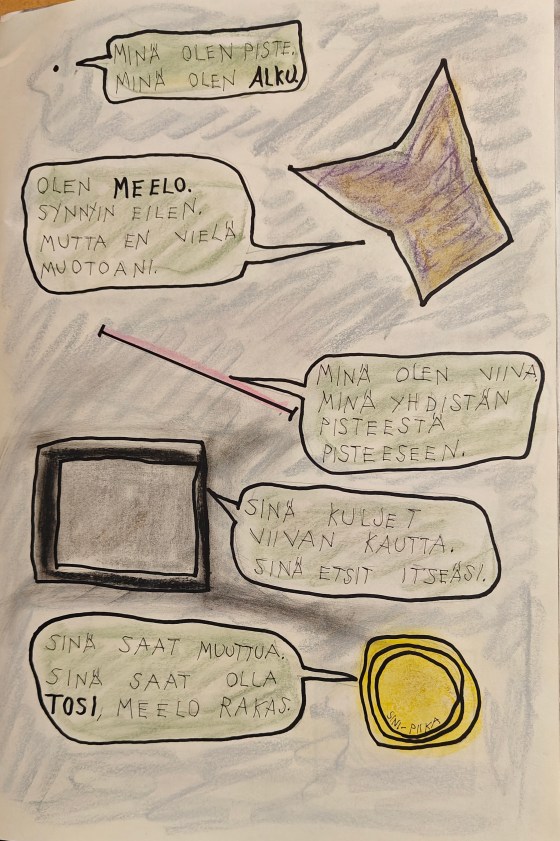 MINÄ OLEN PISTE.
MINÄ OLEN ALKU.
OLEN MEELO.
SYNNYIN EILEN.
MUTTA EN VIELÄ
MUOTOANI.
MINÄ OLEN VIIVA
MINÄ YHDISTÄN
PISTEESTÄ
PISTEESEEN.
SINÄ KULJET
VIIVAN KAUTTA.
SINÄ ETSIT ITSEÄSI.
SINÄ SAAT MUUTTUA.
SINÄ SAAT OLLA
TOSI, MEELO RAKAS.
SINI-PILKA